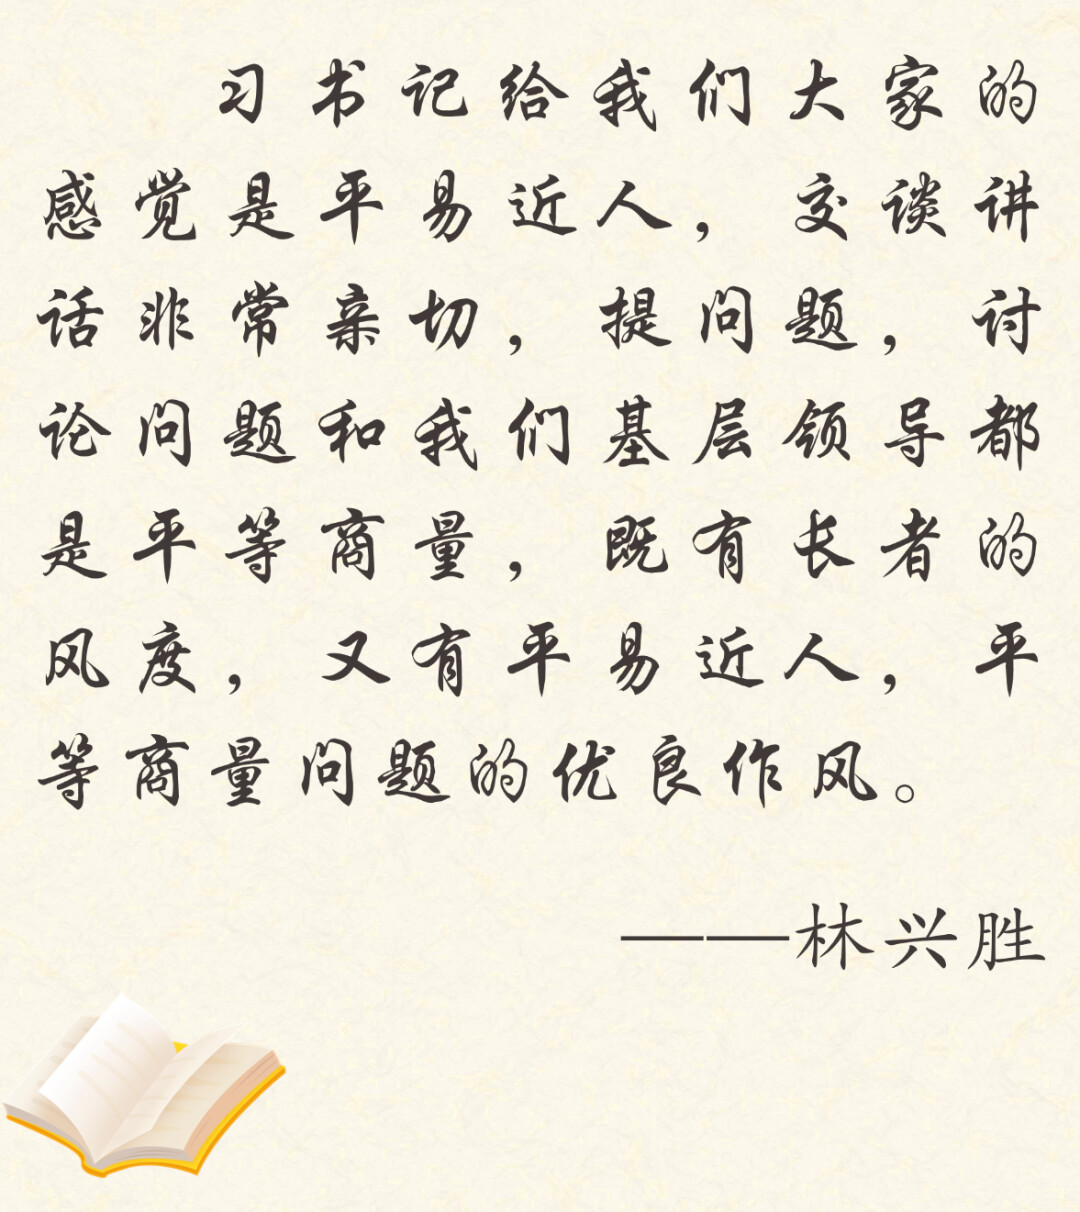 习书记给我们大家的
感觉是平易近人，交谈讲
话非常亲切，提问题，讨
论问题和我们基层领导都
是平等商量，既有长者的
风度，又有平易近人，平
等商量问题的优良作风。
——林兴胜